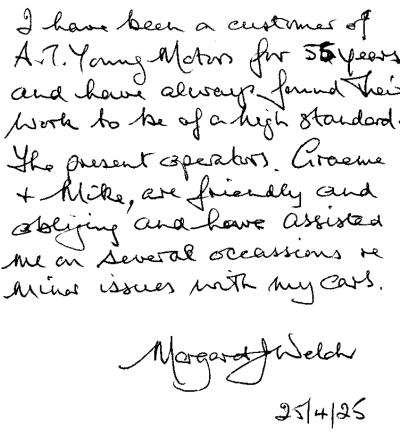 I have been a customer of
A.T. Young Motors for 56 years
and have always found their
work to be of a high standard.
The present operators, Graeme
+ Mike, are friendly and
obliging and have assisted
me on several occassions re
minor issues with my cars.
Margaret J Welch
25/4/25